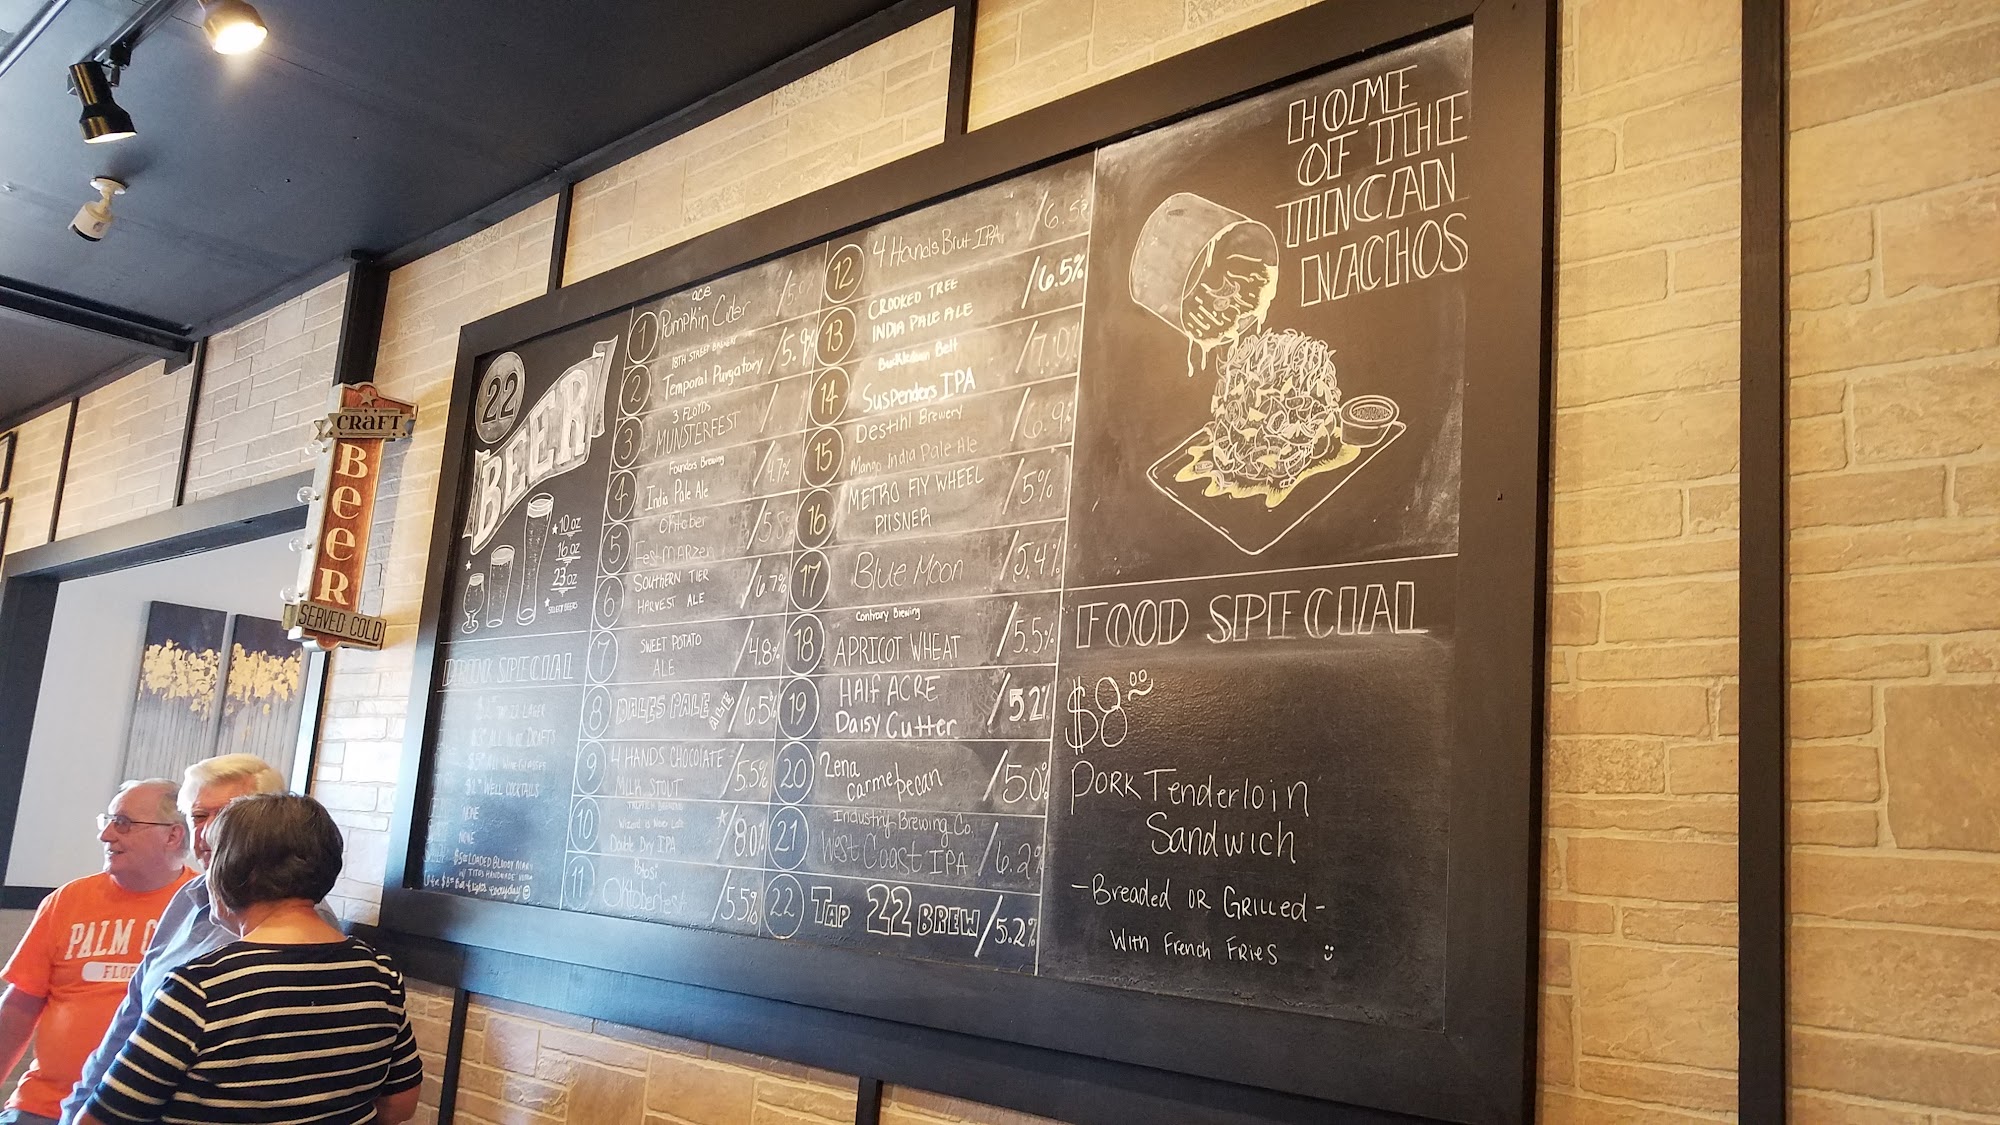 CRAFT
BEER
SERVED COLD
PALM
FLOR
22
BEER
* 10 OZ
16 OZ
23 OZ
* SELECT BEERS
DRINK SPECIAL
LAGER
DRAFTS
WELL COCKTAILS
NONE
NONE
LOADED BLOODY MARY
W/ TITOS HANDMADE
everyday
1 ace
Pumpkin Cider /5.0
18TH STREET BREWERY
2 Temporal Purgatory /5.9%
3 FLOYDS
3 MUNSTERFEST /
Founders Brewing
4 India Pale Ale /4.7%
5 Oktober
FestMARZEN
6 SOUTHERN TIER
HARVEST ALE /6.7%
7 SWEET POTATO
ALE /4.8%
8 DALES PALE ALE /6.5%
9 4 HANDS CHOCOLATE
MILK STOUT /5.5%
10
Double Dry IPA */8.0%
11
Oktoberfest /5.5%
12 4 Hands Brut IPA /6.5%
13 CROOKED TREE
INDIA PALE ALE /6.5%
Buckledown Belt
14 Suspenders IPA /7.0%
15 Destihl Brewery
Mango India Pale Ale /6.9%
16 METRO FLY WHEEL
PILSNER /5%
17 Blue Moon /5.4%
Contrary Brewing
18 APRICOT WHEAT /5.5%
19 HALF ACRE
Daisy Cutter /5.2%
20 Zena
carmel pecan /5.0%
21 Industry Brewing Co.
West Coast IPA /6.2%
22 TAP 22 BREW /5.2%
HOME
OF THE
TINCAN
NACHOS
FOOD SPECIAL
$8.00
PORK Tenderloin
Sandwich
- Breaded OR GRILLED -
WITH French FRIES